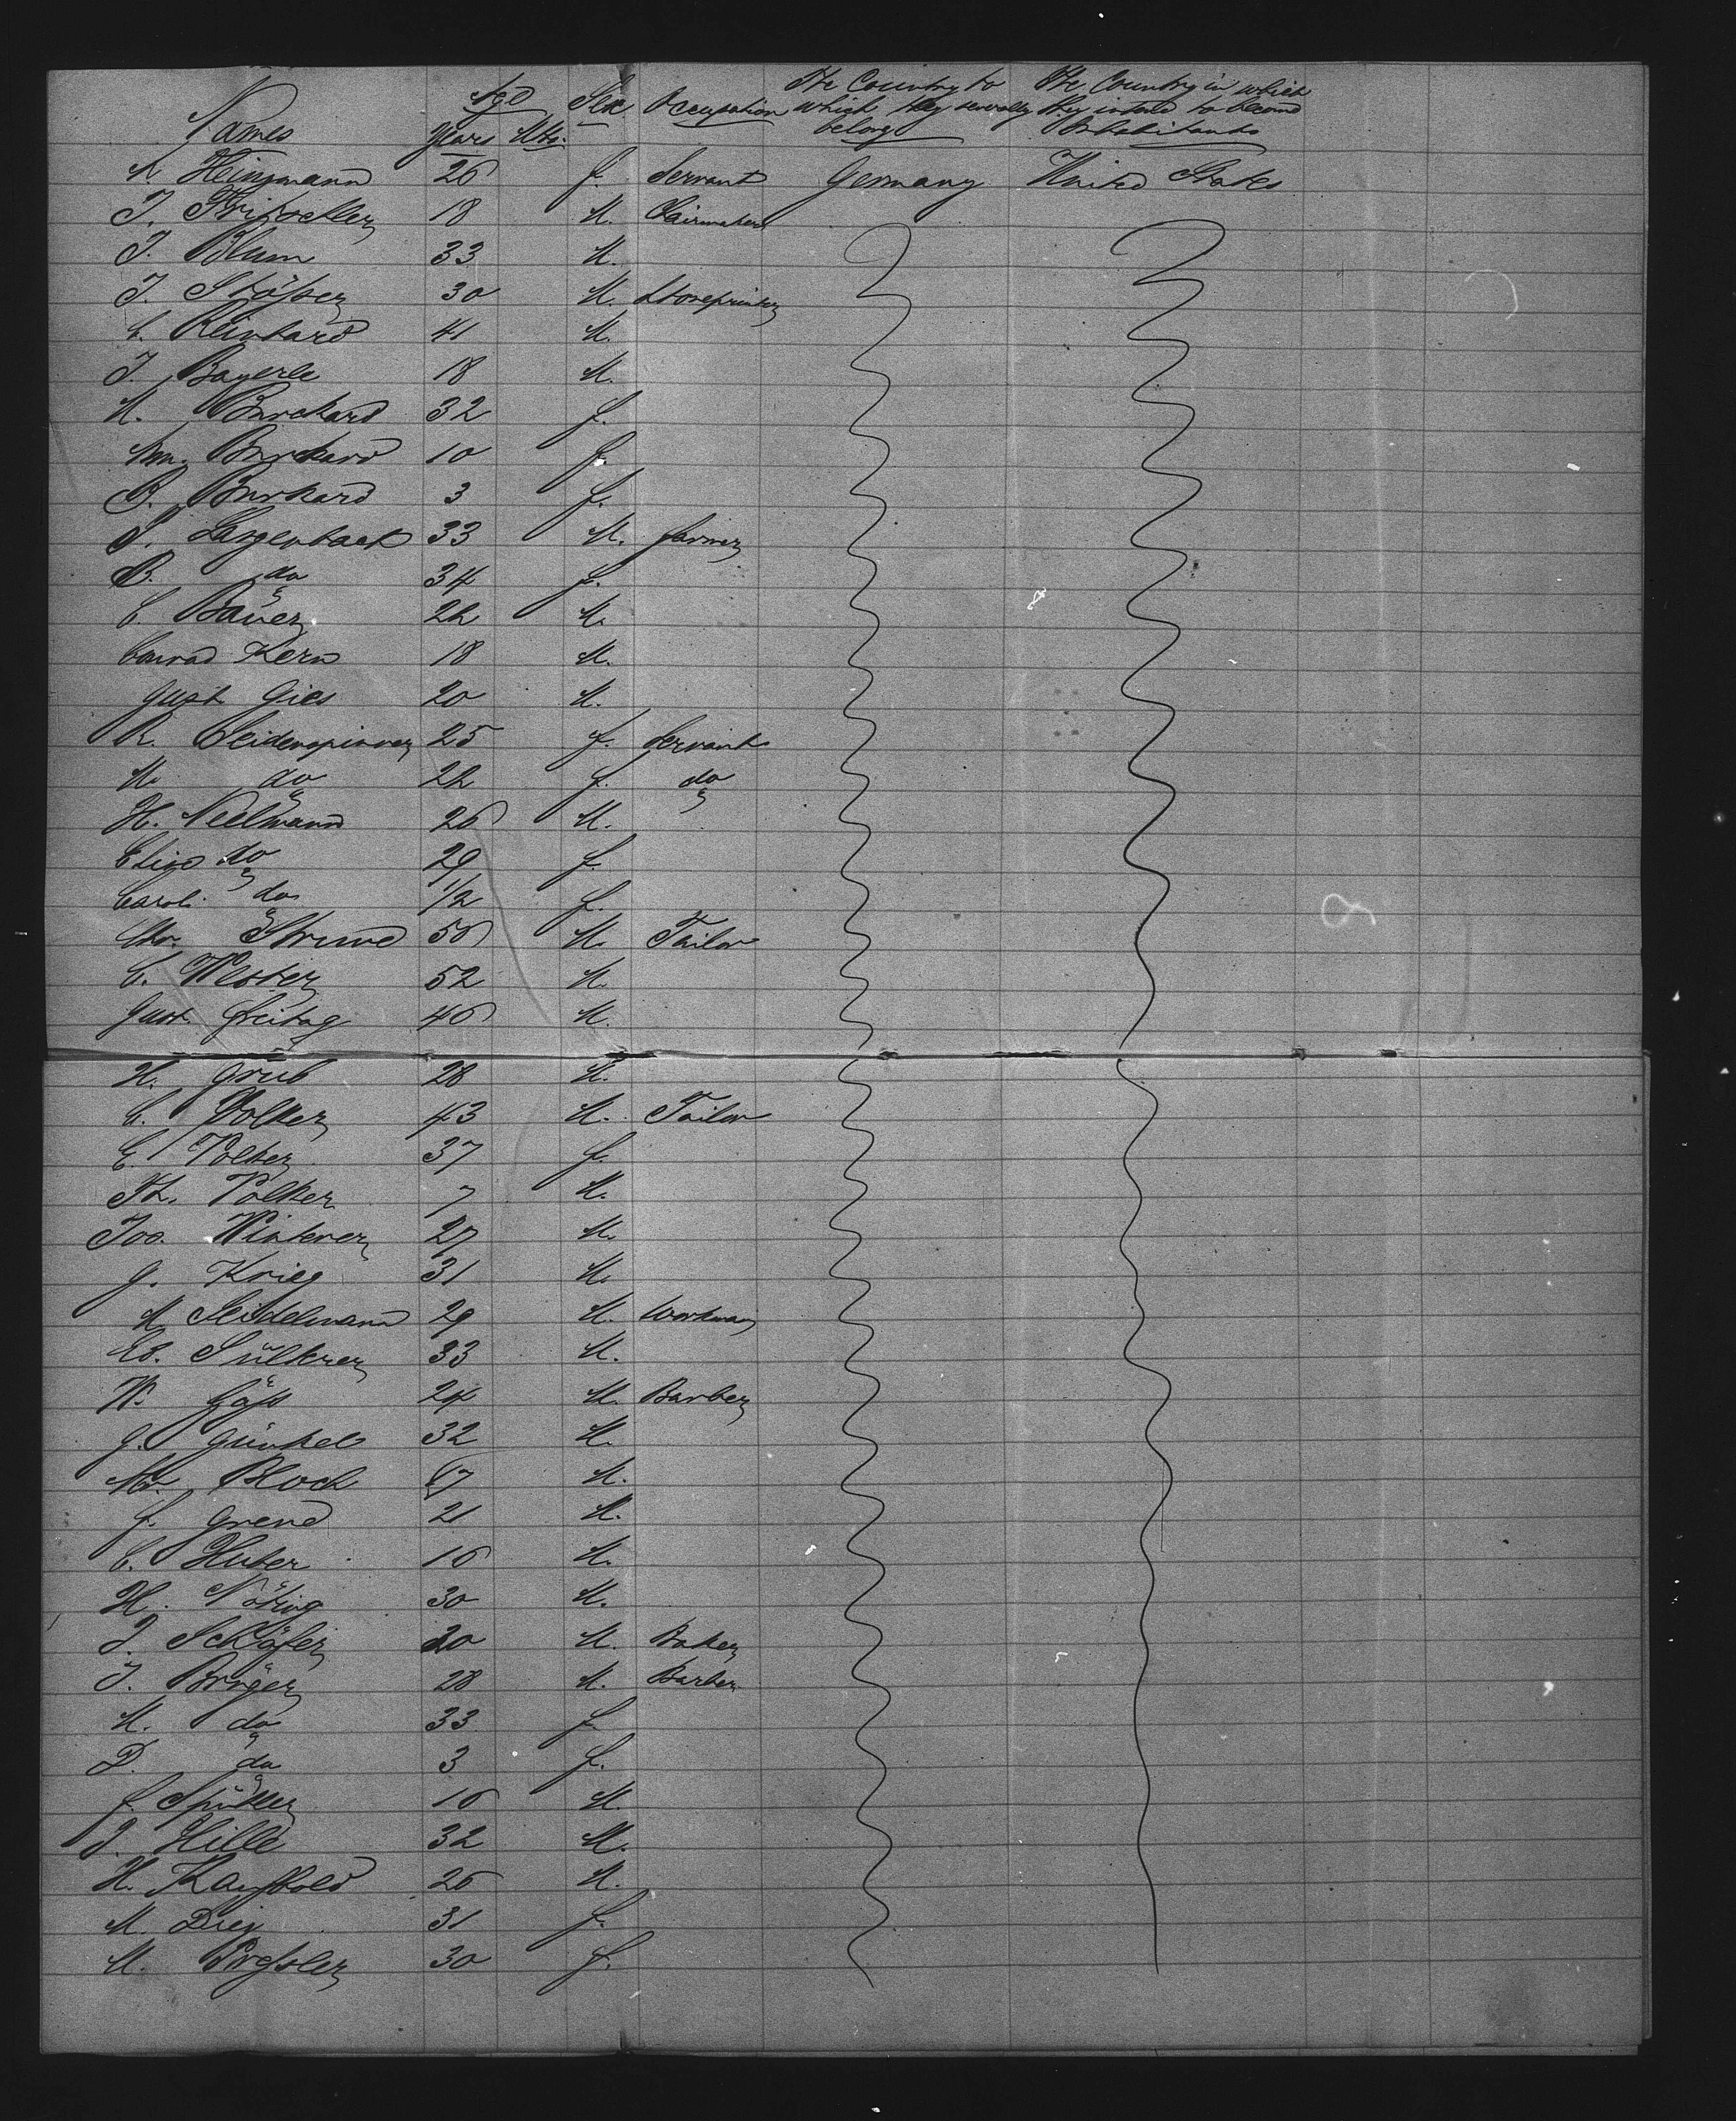 Names Age Years Mts. Sex Occupation The Country to which they severally belong The Country in which they intend to become Inhabitants
Heinzmann 26 f. Servant Germany United States
J. 18 M.
J. Blum 33 M.
J. 30 M. Stoneprinter
C. Reinhard 41 M.
J. Bayerle 18 M.
M. Burckard 32 f.
Burckard 10 f.
B. Burkard 3 f.
S. Langenback 33 M. farmer
B. do 34 f.
C. Bauer 22 M.
Conrad Kern 18 M.
Gust Gies 20 M.
R. Seidenspinner 25 f. Servant
M. do 22 f. do
H. Neelmann 26 M.
Elise do 29 f.
Caroli. do 1/2 f.
Chr. 56 M. Tailor
C. Wester 52 M.
Gust. Freitag 46 M.
H. Grub 28 M.
C. Volker 43 M. Tailor
E. Volker 37 f.
Volker 7 M.
Jos. Winterer 27 M.
G. Krieg 31 M.
M Seidelmann 29 M. Workman
33 M.
W. 24 M. Barber
G. Günkel 32 M.
Bloch M.
f. Grend 21 M.
C. Huber 16 M.
H. Nöting 30 M.
J. Schäfer 20 M. Baker
J. Bröger 28 M. Barber
M. do 33 f.
D. do 3 f.
f. 16 M.
J. Hille 32 M.
H. Kaufhold 26 M.
M. 31 f.
M. 30 f.